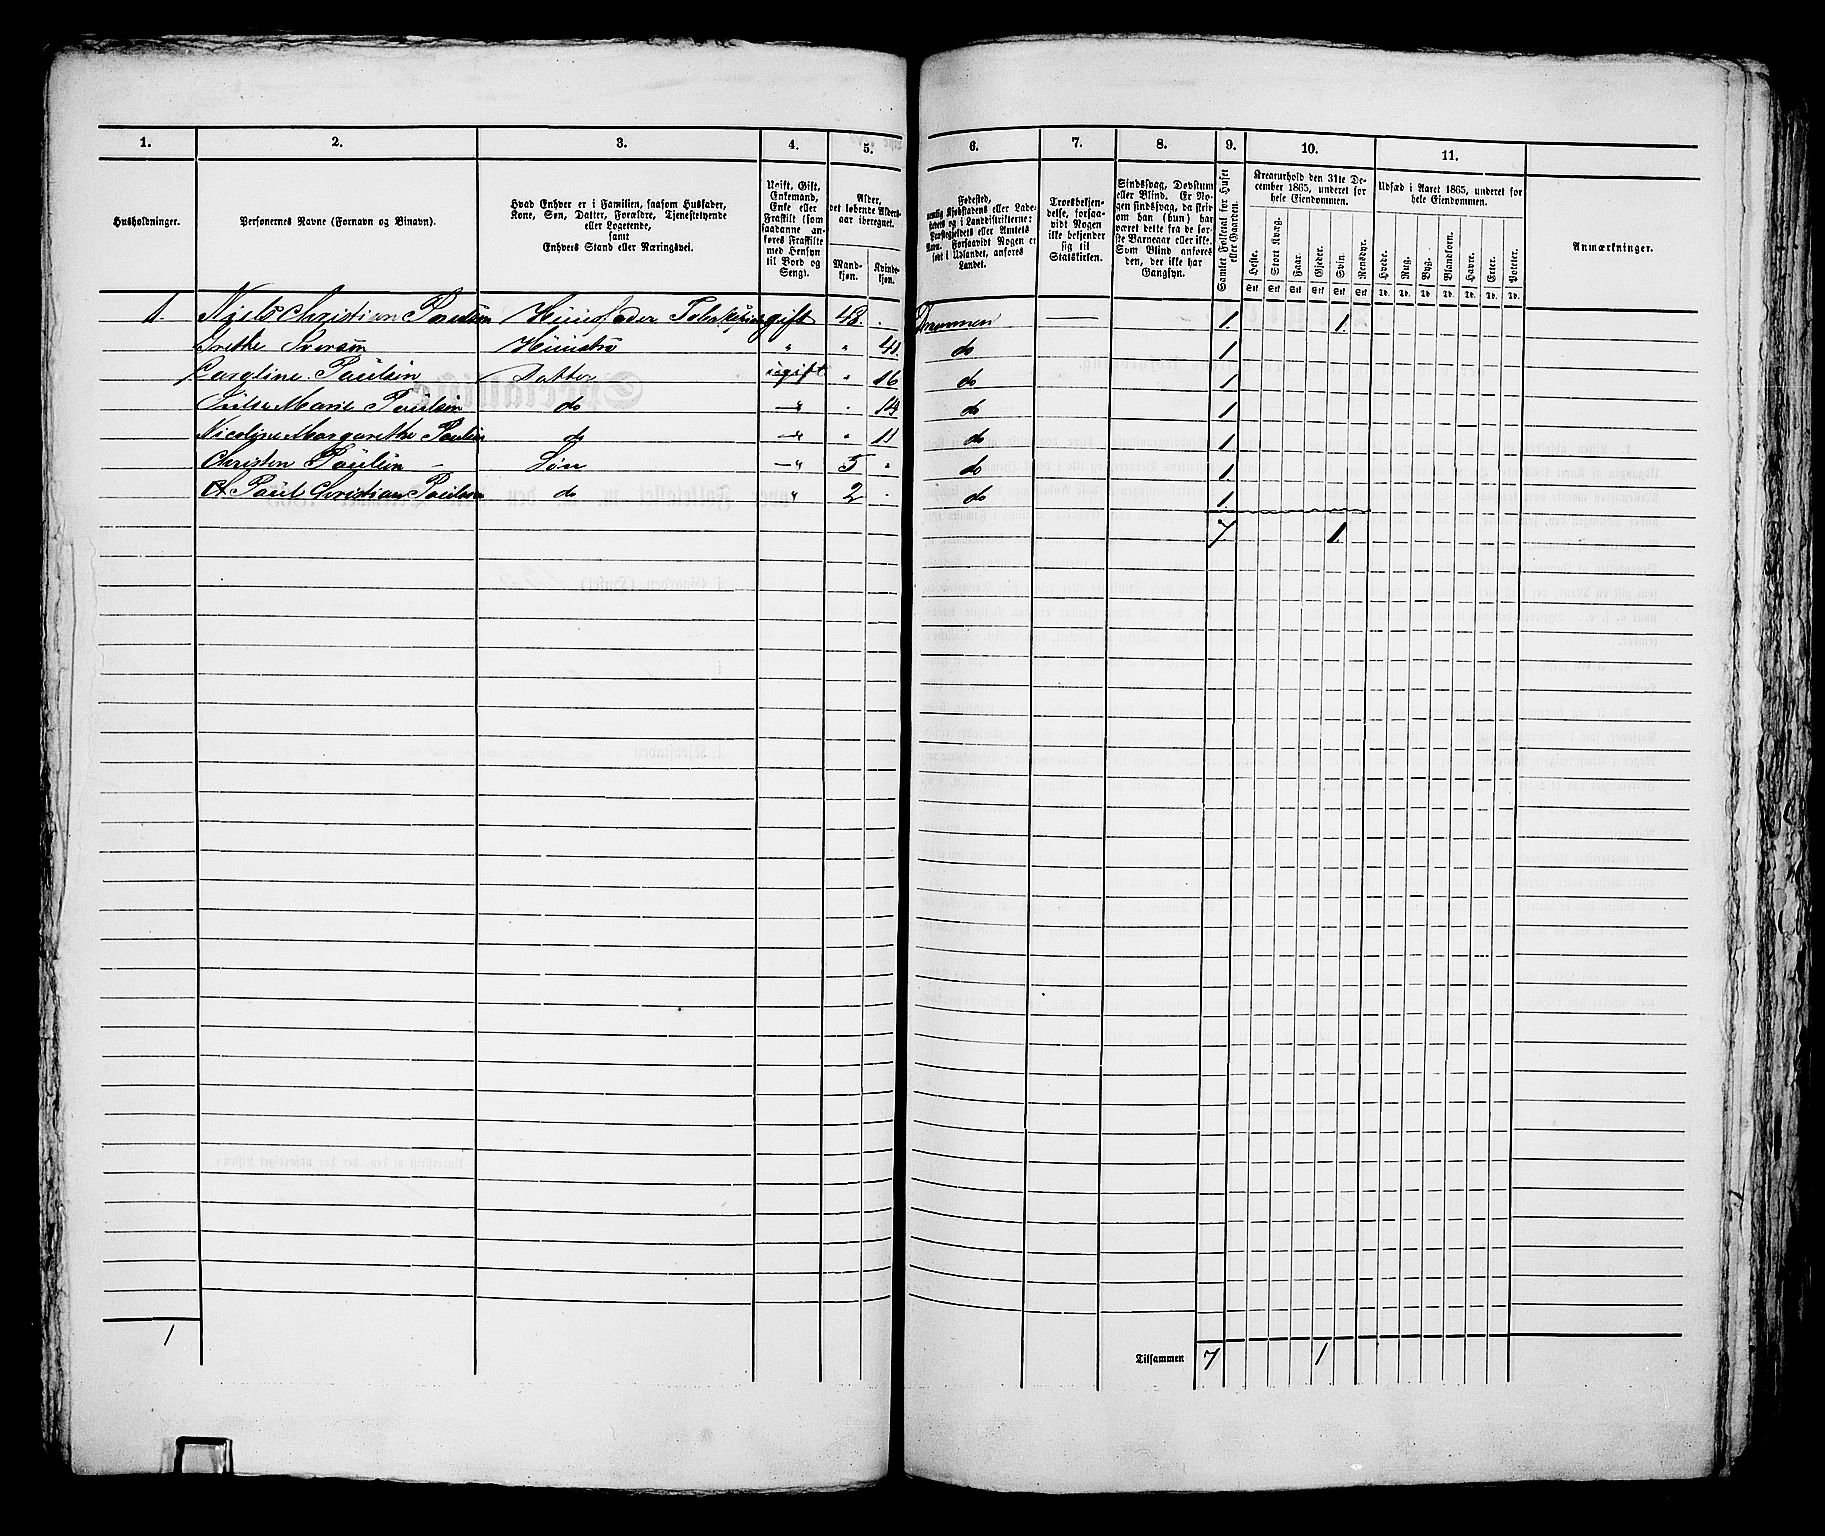 1. 2. 3. 4. 5. 6. 7. 8. 9. 10. 11.
Husholdninger.
Personernes Navne (Fornavn og Binavn).
Hvad Enhver er i Familien, saasom Husfader,
Kone, Søn, Datter, Forældre, Tjenestetyende
eller Logerende,
samt
Enhvers Stand eller Næringsvei.
Ugift, Gift,
Enkemand,
Enke eller
Fraskilt (som
saadanne an-
føres Fraskilte
med Hensyn
til Bord og
Seng).
Alder,
det løbende Alders-
aar iberegnet.
Mand-
kjøn.
Kvinde-
kjøn.
Fødested,
nemlig Kjøbstadens eller Lade-
stedets og i Landdistrikterne:
Præstegjeldets eller Amtets
Navn. Forsaavidt Nogen er
født i Udlandet, anføres
Landet.
Troesbekjen-
delse, forsaa-
vidt Nogen
ikke bekjender
sig til
Statskirken.
Sindssvag, Døvstum
eller Blind. Er No-
gen sindssvag, da skriv
om han (hun) har
været dette fra de før-
ste Barneaar eller ikke.
Som Blind anføres
den, der ikke har
Gangsyn.
Samlet Folketal for Huset
eller Gaarden.
Kreaturhold den 31te De-
cember 1865, underet for
hele Eiendommen.
Heste. Stort Kvæg. Faar. Gjeder. Svin. Rensdyr.
Stk Stk Stk Stk Stk Stk
Udsæd i Aaret 1865, underet for
hele Eiendommen.
Hvede. Rug. Byg. Blandkorn. Havre. Erter. Poteter.
Td. Td. Td. Td. Td. Td. Td.
Anmærkninger.
1. Niels Christian Paulsen Huusfader gift 43. Drammen 1. 1.
Grethe Huustru " " 41. do 1.
Caroline Paulsen Datter ugift " 16 do 1.
Marie Paulsen do " 14 do 1.
Nicoline Margarethe Paulsen do " " 11 do 1.
Christen Paulsen Søn " 5 " do 1.
Paul Christian Paulsen do " 2 do 1.
7. 1.
1
Tilsammen 7 1